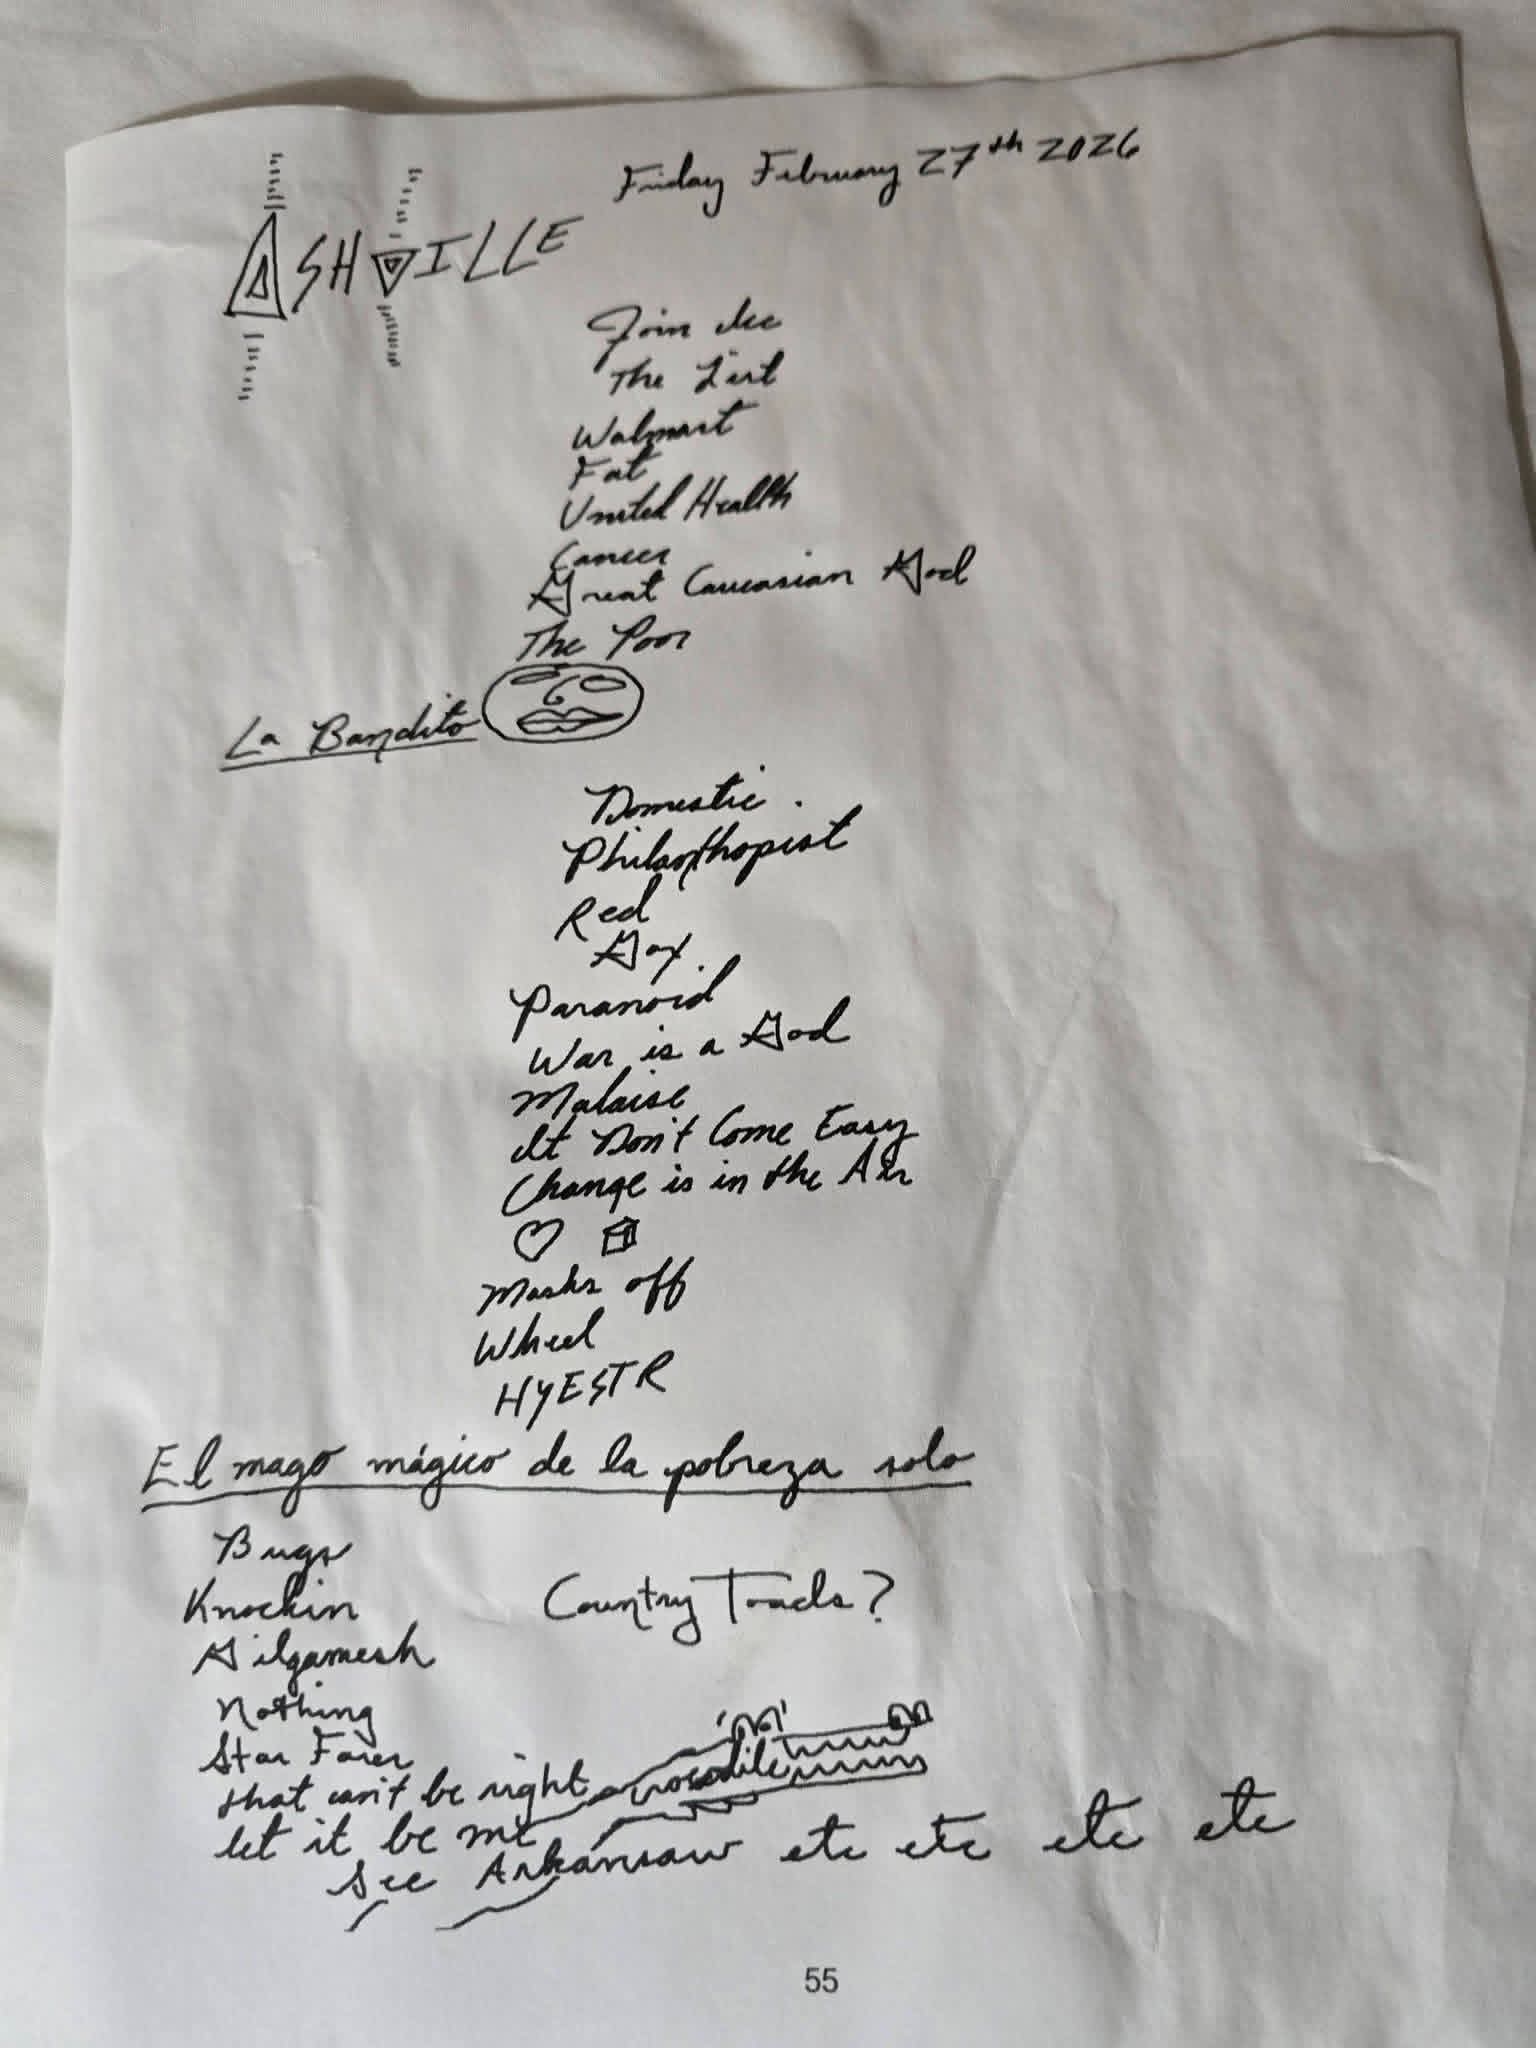 Friday February 27th 2026
ASHVILLE
Join Ice
The List
Walmart
Fat
United Health
Cancer
Great Caucasian God
The Poor
La Bandito
Domestic.
Philanthopist
Red
Gox.
Paranoid
War is a God
Malaise
It Don't Come Easy
Change is in the Air
Masks off
Wheel
HYESTR
El mago mágico de la pobreza solo
Bugs
Knockin
Country Toads?
Gilgamesh
Nothing
Star Farer
that can't be right
crocodile
let it be me
See Arkansaw etc etc etc etc
55